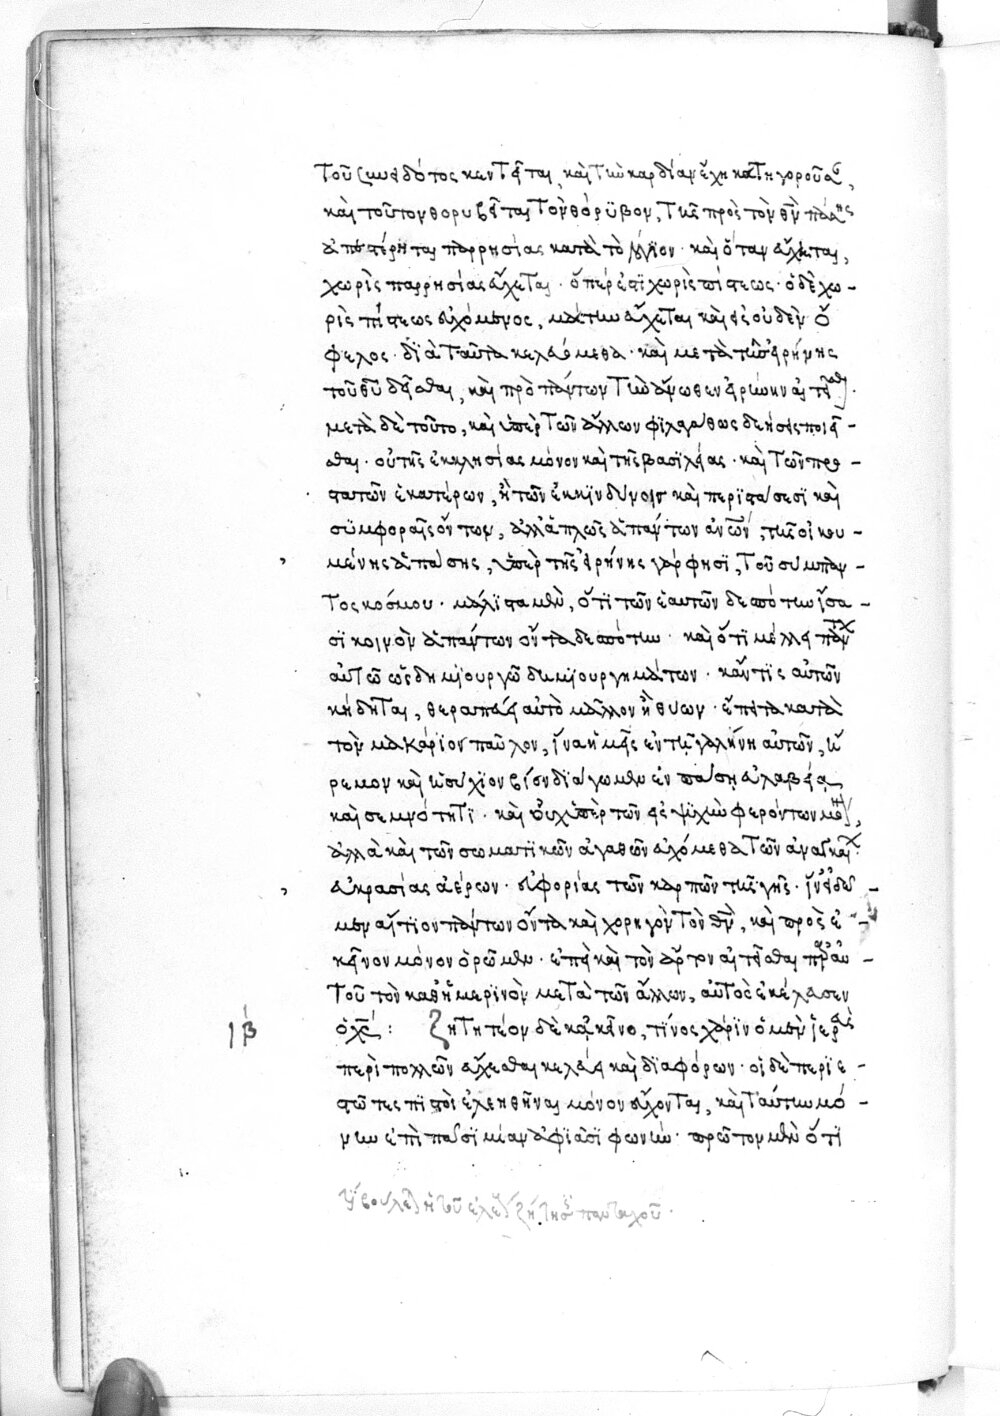 τοῦ συνειδότος κεντεῖται, καὶ τὴν καρδίαν ἔχη κατηγοροῦσαν,
καὶ τοῦτον θορυβεῖται τὸν θόρυβον, τῆς πρὸς τὸν θν πάσης
ἀπεστέρηται παρρησίας κατὰ τὸ καὶ ὅταν εὔχηται,
χωρὶς παρρησίας εὔχεται· ὅπερ ἐστὶ χωρὶς πίστεως· ὁ δὲ χω-
ρὶς πίστεως εὐχόμενος, μάτην εὔχεται καὶ εἰς οὐδὲν ὄ
φελος· διὰ ταῦτα κελευόμεθα καὶ μετὰ τῆς εἰρήνης
τοῦ θυ δεῖσθαι, καὶ πρὸ πάντων τὴν ἄνωθεν εἰρήνην αἰτεῖσθαι·
μετὰ δὲ τοῦτο, καὶ ὑπὲρ τῶν ἄλλων φιλαγάθως δεήσεις ποιεῖ-
σθαι· οὐ τῆς ἐκκλησίας μόνον καὶ τῆς βασιλείας· καὶ τῶν προ-
στατῶν ἑκατέρων, ἢ τῶν ἐν κινδύνοις καὶ περιστάσεσι καὶ
συμφοραῖς ὄντων, ἀλλ' ἁπλῶς ἁπάντων ἀνων, τῆς οἰκου-
μένης ἁπάσης, ὑπὲρ τῆς εἰρήνης γάρ φησι, τοῦ σύμπαν-
τος κόσμου· μάλιστα μὲν, ὅτι τῶν ἑαυτῶν δεσπότην ἴσα-
σι κοινὸν ἁπάντων ὄντα δεσπότην· καὶ ὅτι μέλει πάντων
αὐτῶ ὡς δημιουργῶ δημιουργημάτων· κἄν τις αὐτῶν
κήδηται, θεραπεύει αὐτὸ μᾶλλον ἢ θύων· ἔπειτα κατὰ
τὸν μακάριον παῦλον, ἵνα ἡμεῖς ἐν τῆ γαλήνη αὐτῶν, ἤ
ρεμον καὶ ἡσύχιον βίον διάγωμεν ἐν πάση εὐλαβεία
καὶ σεμνότητι· καὶ οὐχ ὑπὲρ τῶν εἰς ψυχὴν φερόντων μόνον,
ἀλλὰ καὶ τῶν σωματικῶν ἀγαθῶν εὐχόμεθα τῶν ἀναγκαίων·
εὐκρασίας ἀέρων· εὐφορίας τῶν καρπῶν τῆς γῆς· ἵν' εἰδῶ-
μεν αἴτιον πάντων ὄντα καὶ χορηγὸν τὸν θν, καὶ πρὸς ἐ-
κεῖνον μόνον ὁρῶμεν· ἐπεὶ καὶ τὸν ἄρτον αἰτεῖσθαι παρ' αὐ-
τοῦ τὸν καθημερινὸν μετὰ τῶν ἄλλων, αὐτὸς ἐκέλευσεν
ιβ ὁ χς: Ζητητέον δὲ κἀκεῖνο, τίνος χάριν ὁ μὲν ἱερεὺς
περὶ πολλῶν εὔχεσθαι κελεύει καὶ διαφόρων· οἱ δὲ περιε-
στῶτες πιστοὶ ἐλεηθῆναι μόνον εὔχονται, καὶ ταύτην μό-
νην ἐπὶ πᾶσι μίαν ἀφιᾶσι φωνήν· πρῶτον μὲν ὅτι